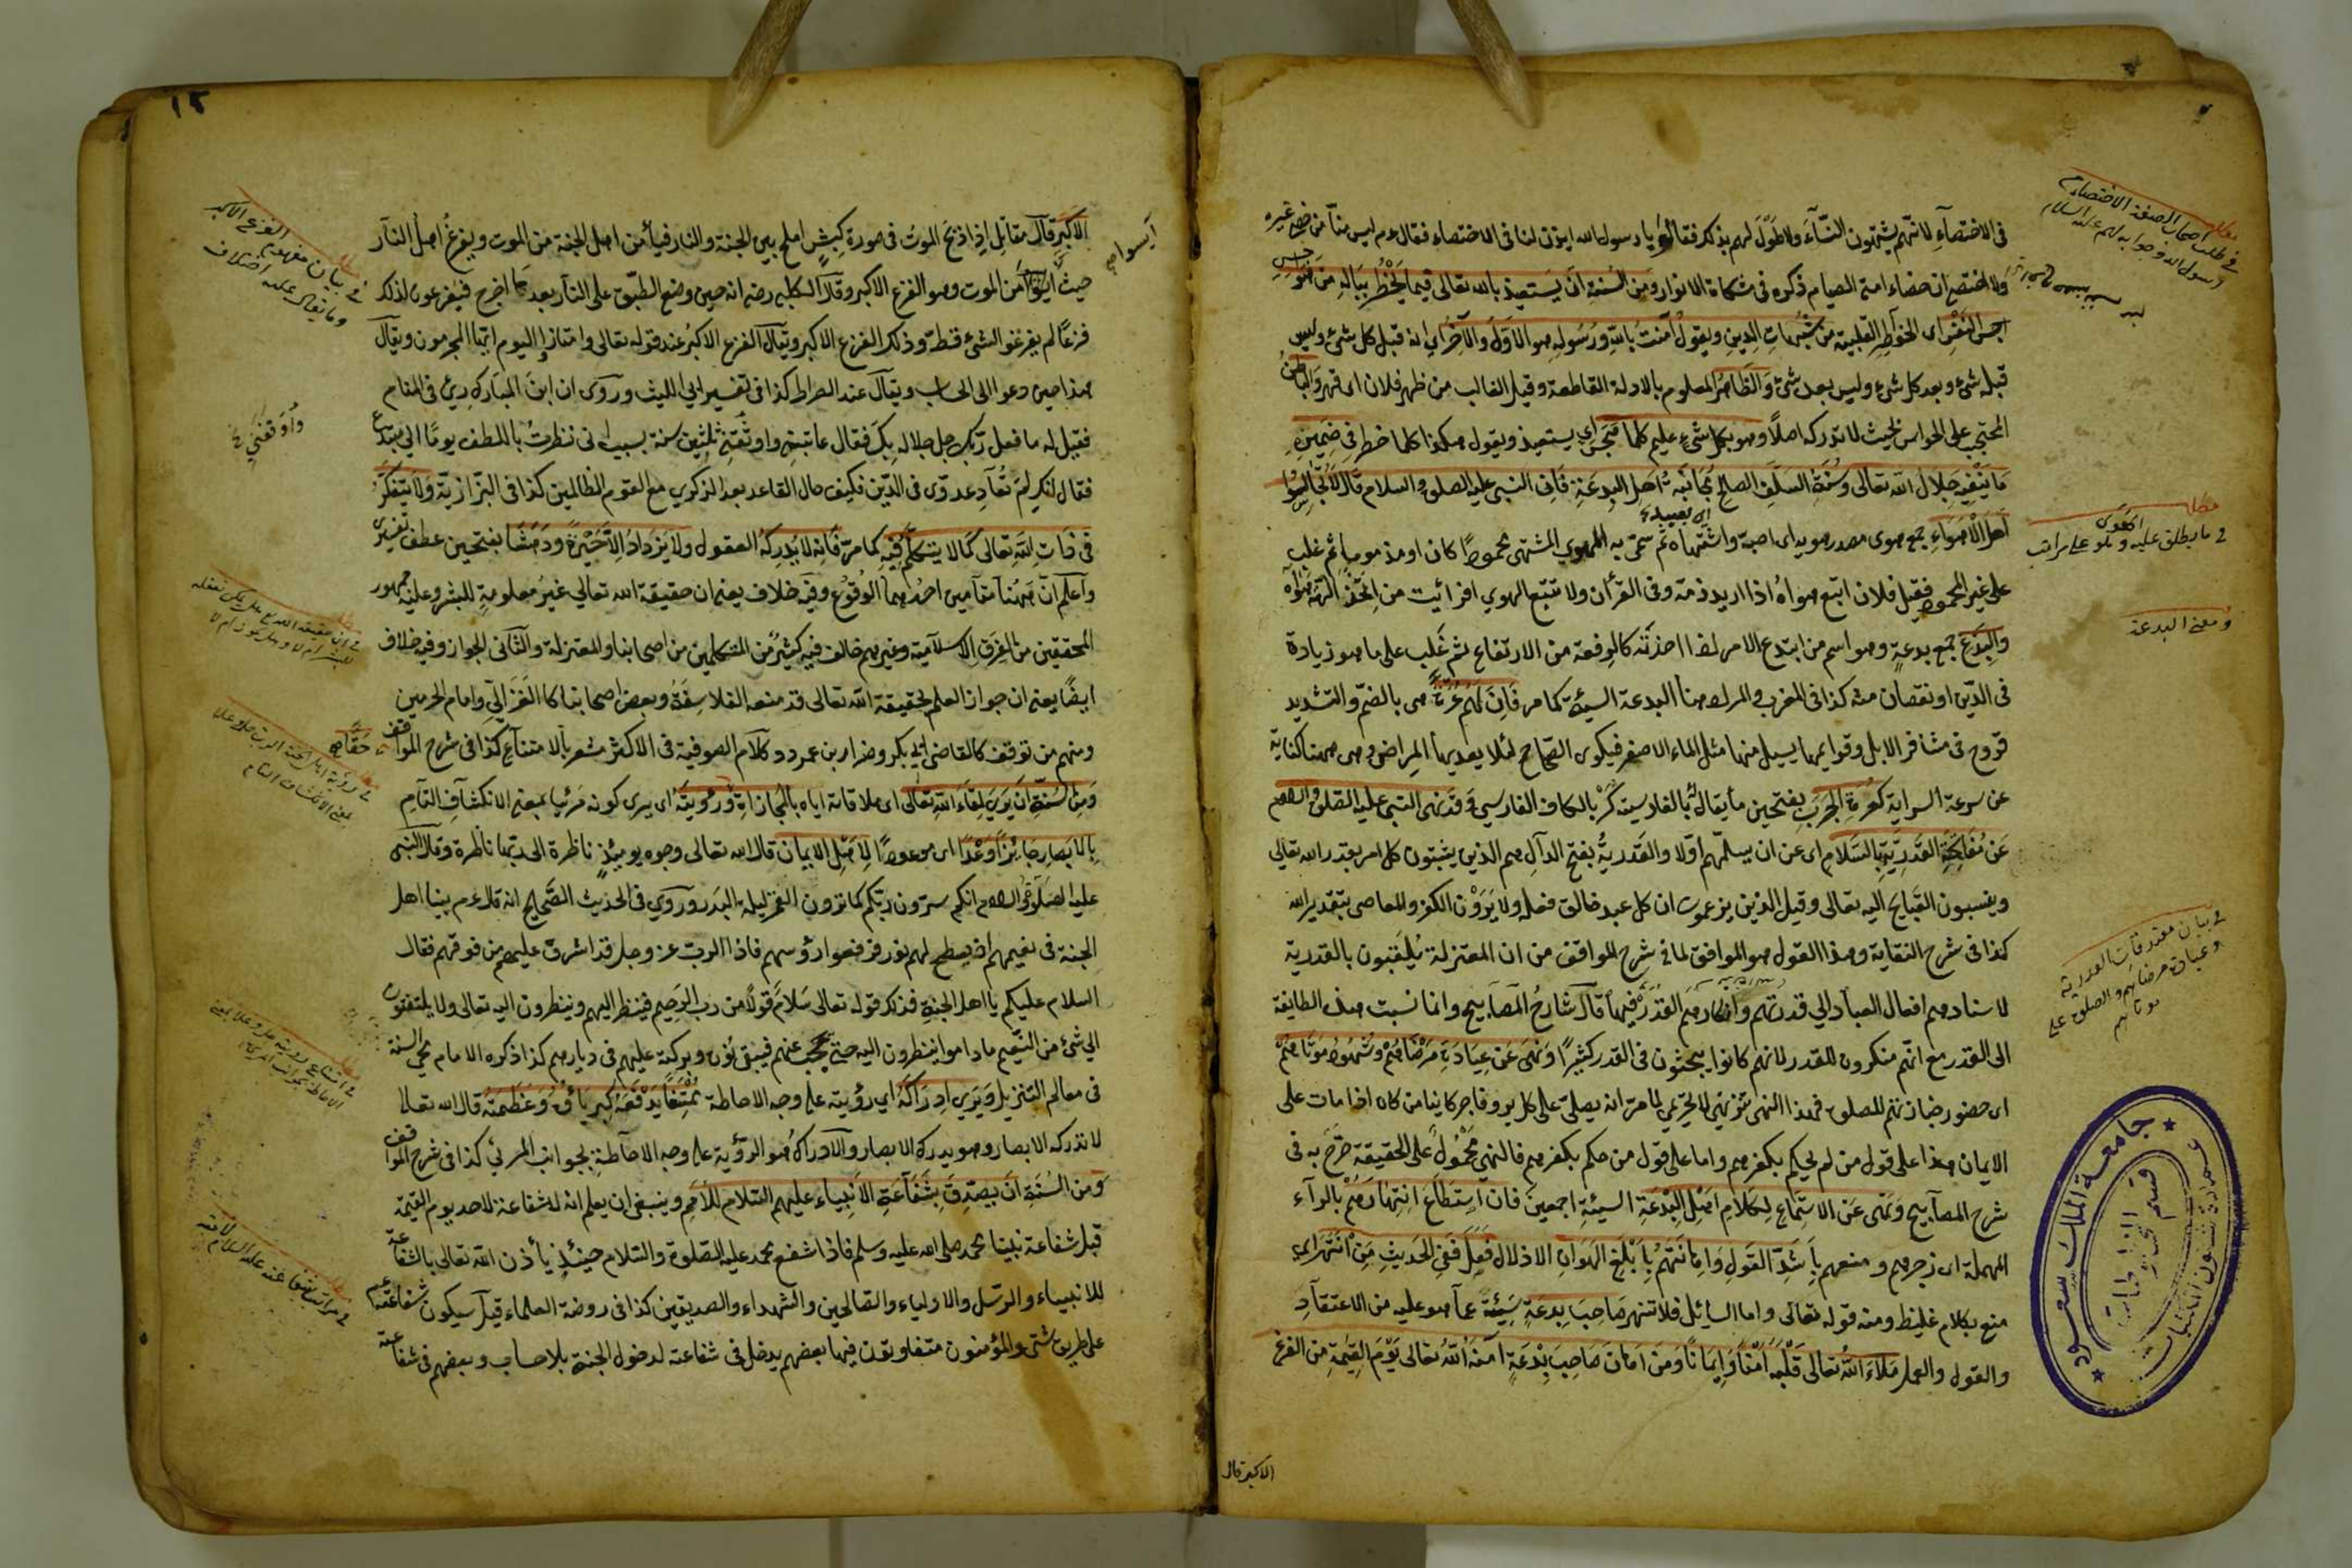 في الاختصاء لانهم يشتهون النساء ولا طول لهم بذلك فقالوا يا رسول الله ايذن لنا في الاختصاء فقال عم ليس منا من خصى غيره
ولا اختصى ان خصاء امتي الصيام ذكره في مشكاة الانوار ومن السنة ان يستعيذ بالله تعالى فيما يخطر بباله من هواجس
اي الخواطر القلبية من شبهات الدين ويقول آمنت بالله ورسوله هو الاول والآخر اي انه قبل كل شئ وليس
قبله شئ وبعد كل شئ وليس بعده شئ والظاهر المعلوم بالادلة القاطعة وقيل الغالب من ظهر فلان اي قهر والباطن
المحتجب على الحواس بحيث لا تدركه اصلا وهو بكل شئ عليم كلما هجس اي يستعيذ ويقول هكذا كلما خطر في ضميره
ما ينفيه جلال الله تعالى وسنة السلف الصالح مجانبة اهل البدعة فان النبي عليه الصلوة والسلام قال لا تجالسوا
اهل الاهواء جمع هوى مصدر هويه اى احبه واشتهاه ثم سمى به الهوي المشتهى محمودا كان او مذموما ثم غلب
على غير المحمود فقيل فلان اتبع هواه اذا اريد ذمه وفي القرآن ولا تتبع الهوي افرأيت من اتخذ الهه هواه
والبدع جمع بدعة وهو اسم من ابتدع الامر اذا احدثه كالرفعة من الارتفاع ثم غلب على ما هو زيادة
في الدين او نقصان منه كذا في المغرب والمراد هنا البدعة السيئة كما مر فان لهم عرة هي بالضم والتشديد
قروح في مشافر الابل وقوايمها يسيل منها مثل الماء الاصفر فيكوى الصحاح لئلا يعديها المراض وهي ههنا كناية
عن سرعة السراية كعرة الجرب بفتحين ما يقال بالفارسية كر بالكاف الفارسي وقد نهى النبي عليه الصلوة والسلام
عن مفاتحة القدرية بالسلام اى عن ان يسلمهم اولا والقدرية بفتح الدال هم الذين يثبتون كل امر بقدر الله تعالى
وينسبون القبايح اليه تعالى وقيل الذين يزعمون ان كل عبد خالق فعله ولا يرون الكفر والمعاصي بتقدير الله
كذا في شرح النقاية وهذا القول هو الموافق لما في شرح المواقف من ان المعتزلة يلقبون بالقدرية
لاسنادهم افعال العباد الي قدرتهم وانكارهم القدر فيها قال شارح المصابيح وانما نسبت هذه الطايفة
الى القدر مع انهم منكرون للقدر لانهم كانوا يبحثون في القدر كثيرا ونهى عن عيادة مرضاهم وشهود موتاهم
اى حضور جنازتهم للصلوة فهذا النهي تنزيهي لا تحريمي لما مر انه يصلى على كل بر وفاجر كاينا من كان اذا مات على
الايمان هذا على قول من لم يحكم بكفرهم واما على قول من حكم بكفرهم فالنهي محمول على الحقيقة صرح به في
شرح المصابيح ونهى عن الاستماع لكلام اهل البدعة السيئة اجمعين فان استطاع انتهارهم بالراء
المهملة اى زجرهم ومنعهم باشد القول واهانتهم بابلغ الهوان الاذلال فعل ففي الحديث من انتهر اي
منع بكلام غليظ ومنه قوله تعالى واما السائل فلا تنهر صاحب بدعة سيئة عما هو عليه من الاعتقاد
والقول والعمل ملاء الله تعالى قلبه امنا وايمانا ومن اهان صاحب بدعة آمنه الله تعالى يوم القيمة من الفزع
الاكبر قال
في طلب اصحاب الصفة الاختصاء من
رسول الله وجوابه لهم عليه السلام
مطلب
في ما يطلق عليه الهوى
ومعنى البدعة
في بيان معتقدات القدرية
وعيادة مرضاهم والصلوة على
موتاهم
جامعة الملك سعود
عمادة شؤون المكتبات
قسم المخطوطات
١٢
الاكبر قال مقاتل اذا ذبح الموت في صورة كبش املح بين الجنة والنار فيأمن اهل الجنة من الموت ويفزع اهل النار
حيث ايسوا من الموت وهو الفزع الاكبر وقال الكلبي رضه انه حين وضع الطبق على النار بعد ما اخرج فيفزعون لذلك
فزعا لم يفزعوا لشئ قط وذلك الفزع الاكبر ويقال الفزع الاكبر عند قوله تعالى وامتازوا اليوم ايها المجرمون ويقال
هذا حين دعوا الى الحساب ويقال عند الصراط كذا في تفسير ابي الليث وروى ان ابن المبارك رئي في المنام
فقيل له ما فعل ربك جل جلاله بك فقال عاتبني واوقفني ثلثين سنة بسبب اني نظرت باللطف يوما الى مبتدع
فقال انك لم تعاد عدوي في الدين فكيف حال القاعد بعد الذكري مع القوم الظالمين كذا في البزازية ولا يتفكر
في ذات الله تعالى كما لا يتكلم فيه كما مر فانه لا يدركه العقول ولا يزداد الا حيرة ودهشا بفتحين عطف تفسير
واعلم ان ههنا مقامين احدهما الوقوع وفيه خلاف يعنى ان حقيقة الله تعالي غير معلومة للبشر وعليه جمهور
المحققين من الفرق الاسلامية وغيرهم خالف فيه كثير من المتكلمين من اصحابنا والمعتزلة والثاني الجواز وفيه خلاف
ايضا يعنى ان جواز العلم بحقيقة الله تعالى قد منعه الفلاسفة وبعض اصحابنا كالغزالي وامام الحرمين
ومنهم من توقف كالقاضي ابي بكر وضرار بن عمرو وكلام الصوفية في الاكثر مشعر بالامتناع كذا في شرح المواقف
ومن السنة ان يرى لقاء الله تعالى اى ملاقاته اياه بالمجازاة ورؤيته اى يرى كونه مرئيا بمعنى الانكشاف التام
بالابصار جائزا وعدا اى موعودا لاهل الايمان قال الله تعالى وجوه يومئذ ناظرة الى ربها ناظرة وقال النبي
عليه الصلوة والسلام انكم سترون ربكم كما ترون القمر ليلة البدر وروي في الحديث الصحيح انه قال عم بينا اهل
الجنة في نعيمهم اذ سطع لهم نور فرفعوا رؤسهم فاذا الرب عز وجل قد اشرق عليهم من فوقهم فقال
السلام عليكم يا اهل الجنة فذلك قوله تعالى سلام قولا من رب الرحيم فينظر اليهم وينظرون اليه تعالى ولا يلتفتون
الي شئ من النعيم ماداموا ينظرون اليه حتى يحجب عنهم فيبقى نوره وبركته عليهم في ديارهم كذا ذكره الامام محي السنة
في معالم التنزيل ويرى ادراكه اي رؤيته على وجه الاحاطة ممتنعا يدفعه كبرياؤه وعظمته قال الله تعالى
لا تدركه الابصار وهو يدرك الابصار والادراك هو الرؤية على وجه الاحاطة بجوانب المرئي كذا في شرح المواقف
ومن السنة ان يصدق بشفاعة الانبياء عليهم السلام للامم وينبغي ان يعلم انه لا شفاعة لاحد يوم القيمة
قبل شفاعة نبينا محمد صلى الله عليه وسلم فاذا شفع محمد عليه الصلوة والسلام حينئذ يأذن الله تعالى بالشفاعة
للانبياء والرسل والاولياء والصالحين والشهداء والصديقين كذا في روضة العلماء قيل سيكون شفاعته عم
على طريق شتى والمؤمنون متفاوتون فيها بعضهم يدخل في شفاعته لدخول الجنة بلا حساب وبعضهم في شفاعته
ايسوا صح
في بيان مفهوم الفزع الاكبر
وما يقال عليه اختلاف
واوقفني